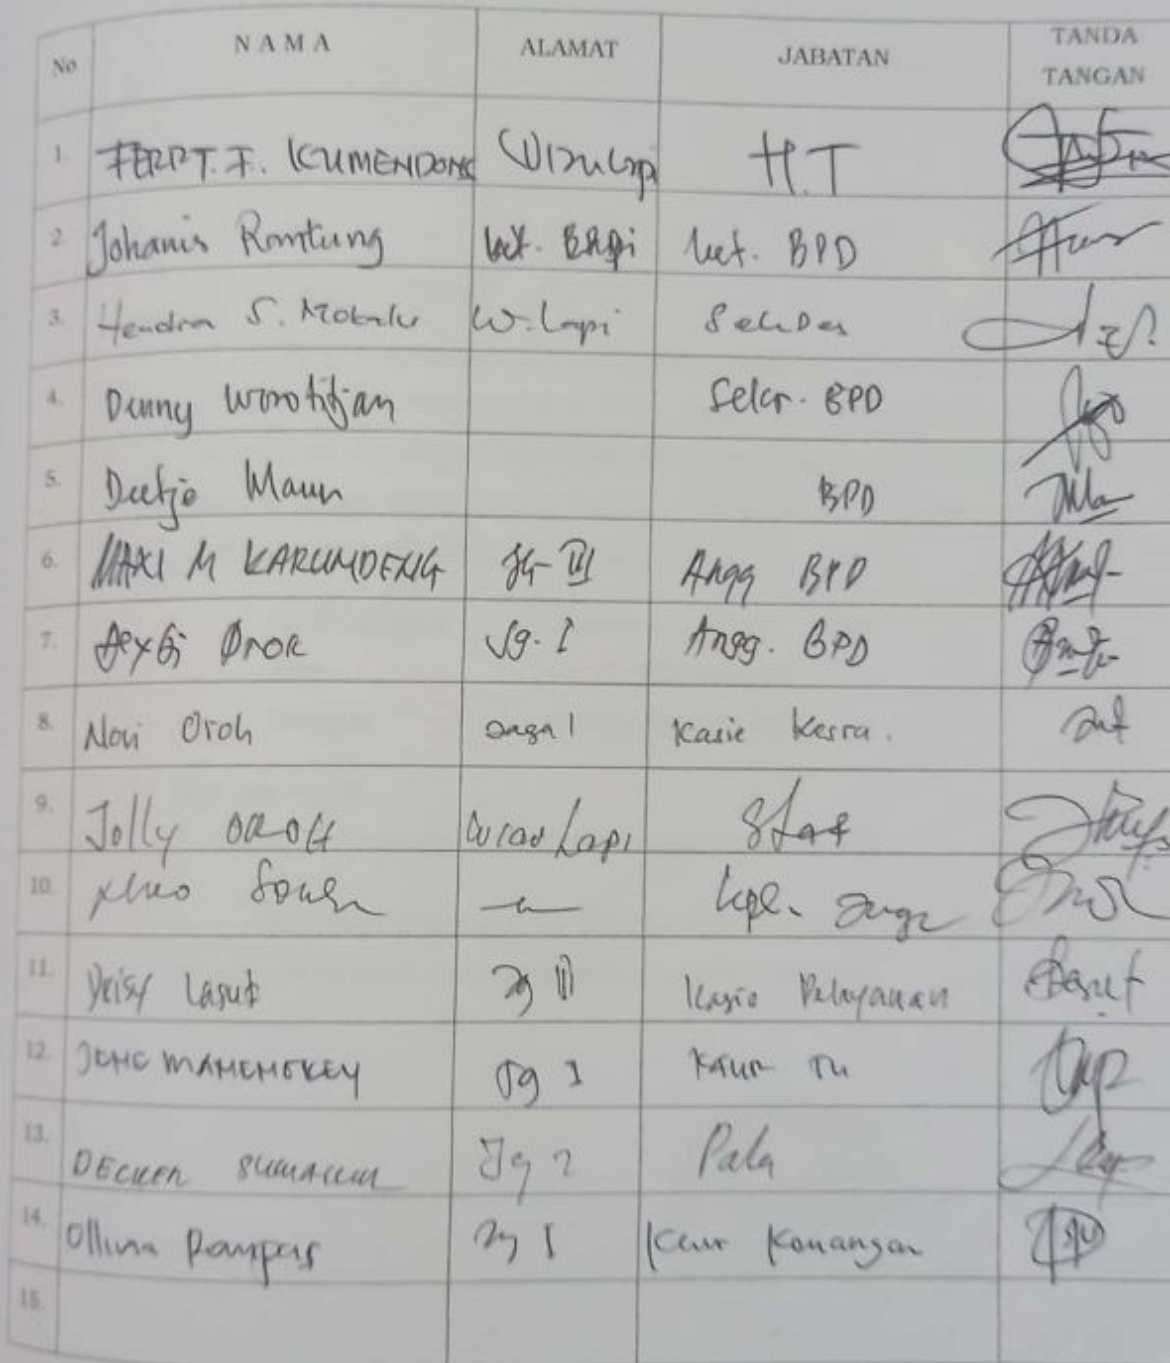 No NAMA ALAMAT JABATAN TANDA TANGAN
1. FERRT. F. KUMENDONG H.T
2. Johanis Rontung BPD
3. Hendra S. Mokalu W. Lapi SekDes
4. Denny Worotitjan Sekr. BPD
5. Deetje Maun BPD
6. MAXI M KARUNDENG JG III Angg BPD
7. Jg. I Angg. BPD
8. Novi Oroh Jaga I Kasie Kesra.
9. Jolly OROH Wiau Lapi Staf
10. Kpl. Jaga
11. Deisy Lasut Jg III Kasie Pelayanan
12. MAMENGKEY Jg I KAUR TU
13. DECKER Jg 2 Pala
14. Rampas Jg I Kaur Kouangan
15.